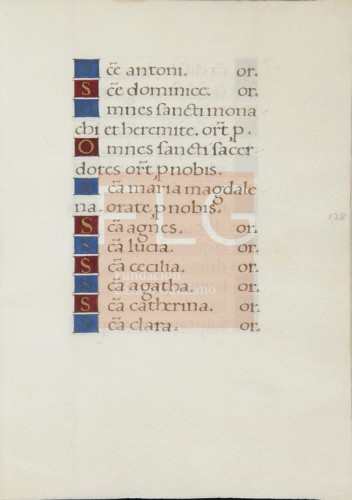 S c̄e antoni. or.
S c̄e dominice. or.
O mnes sancti mona
chi et heremite. or̄t, p.
O mnes sancti sacer
dotes or̄t p nobis.
S c̄a maria magdale
na. orate, p nobis.
S c̄a agnes. or.
S c̄a lucia. or.
S c̄a cecilia. or.
S c̄a agatha. or.
S c̄a catherina. or.
S c̄a clara. or.
128
FLG
Fundación